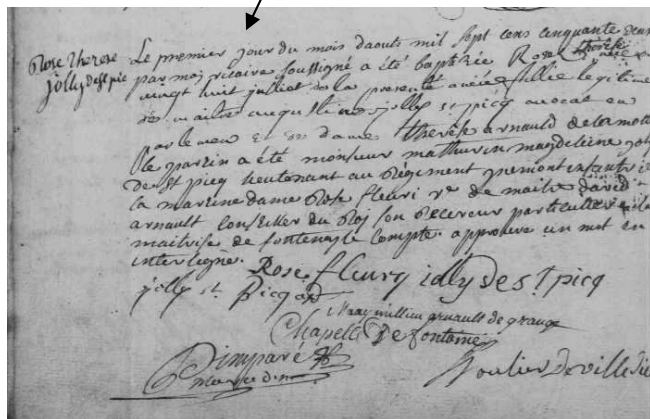 Rose Therese
jolly de st pic
Le premier jour du mois daouts mil sept cens cinquante deux
par moy vicaire soussigné a été baptisée Rose thérèse née
vingt huit juilliat de la presente année fillie legitime
de maitre augustin jolly st picq avocat en
parlement et de dame thérèse arnauld de la motte
le parrin a été monsieur mathurin magdeleine joly
de st picq lieutenant au Régiment infantrie
la marrine dame Rose fleuri ve de maitre david
arnault Conseiller du Roj son Receveur particullier
maitrise de fontenay le Compte. approuvé un mot en
interligne.
Rose fleury jolly de st picq
jolly st Picq
arnault de grange
Chapelle De fontaine